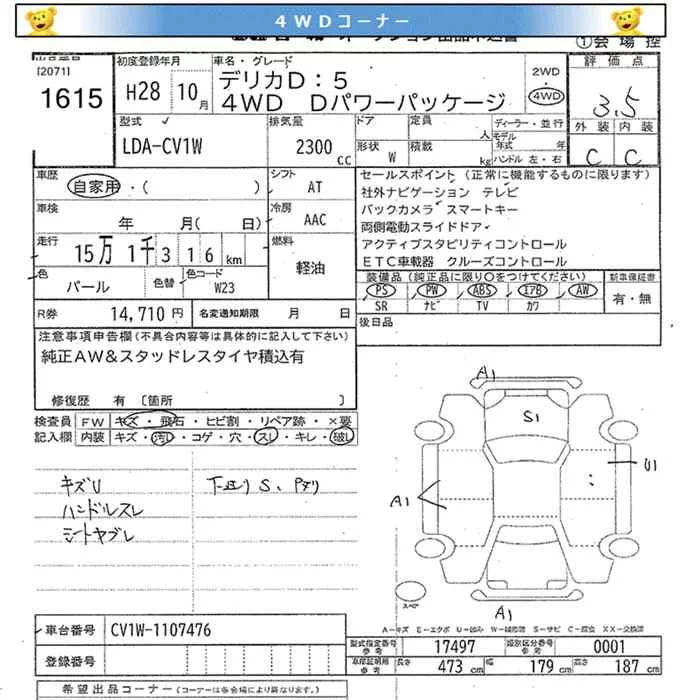 4WDコーナー
①会場控
出品番号
[2071]
1615
初度登録年月
H28 10月
車名・グレード
デリカD:5
4WD Dパワーパッケージ
2WD
・
4WD
評価点
3.5
外装 内装
C C
型式
LDA-CV1W
排気量
2300 cc
ドア
定員
人
形状 W
積載
kg
ディーラー・並行
モデル年式 年式
ハンドル 左・右
車歴
自家用・( )
シフト
AT
車検
年 月( 日)
冷房
AAC
走行
15万1千316km
燃料
軽油
色
パール
色替
色コード
W23
R券 14,710円
名変通知期限 月 日
セールスポイント (正常に機能するものに限ります)
社外ナビゲーション テレビ
バックカメラ スマートキー
両側電動スライドドア
アクティブスタビリティコントロール
ETC車載器 クルーズコントロール
装備品(純正品に限り○をつけてください)
新車保証書
PS PW ABS エアB AW
SR ナビ TV カワ
有・無
後日品
注意事項申告欄(不具合内容等は具体的に記入して下さい)
純正AW&スタッドレスタイヤ積込有
修復歴 有 [箇所 ]
検査員記入欄
FW キズ・飛石・ヒビ割・リペア跡・×要
内装 キズ・汚レ・コゲ・穴・スレ・キレ・破レ
キズU
ハンドルスレ
シートヤブレ
下廻りS、
A1
S1
U1
A1
A1
スペア
A-キズ E-エクボ U-凹み W-補修跡 S-サビ C-腐食 XX-交換済
車台番号 CV1W-1107476
登録番号
型式指定番号 参考 17497
類別区分番号 参考 0001
車庫証明用 参考 長さ 473cm 幅 179cm 高さ 187cm
希望出品コーナー(コーナーは各会場により異なります。)